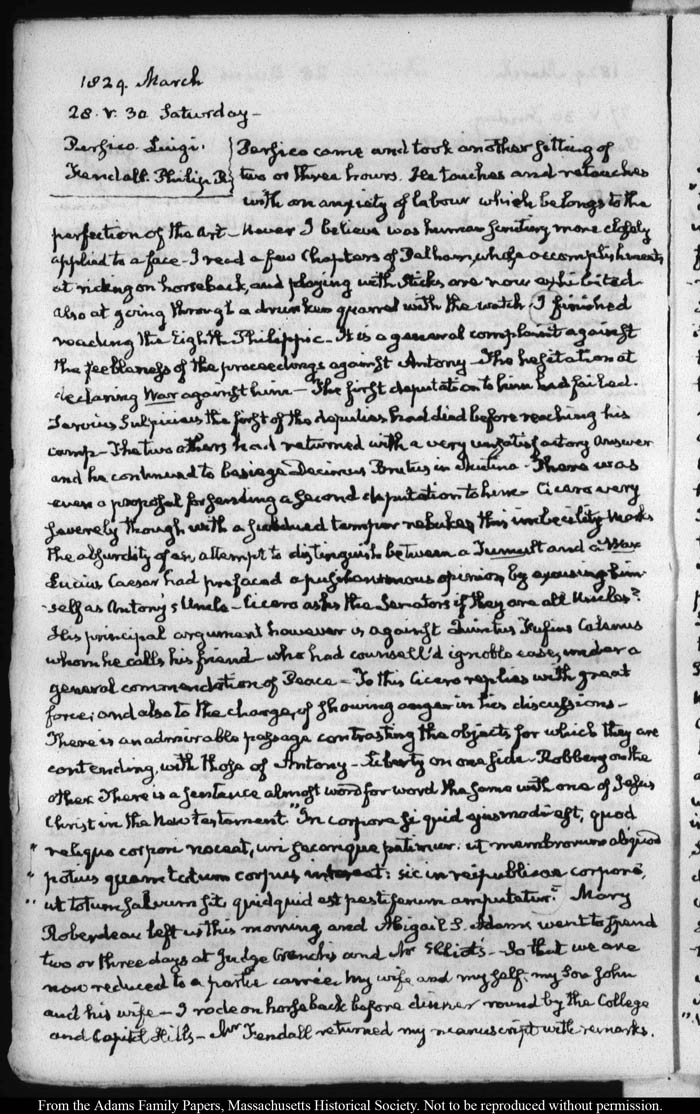 1829. March
28. V. 30. Saturday—
Persico. Luigi.
Kendall. Philip R
Persico came and took another sitting of
two or three hours. He touches and retouches
with an anxiety of labour which belongs to the
perfection of the Art— Never I believe was human scrutiny more closely
applied to a face— I read a few Chapters of Pelham, whose accomplishments
at riding on horseback, and playing with sticks are now exhibited
also at going through a drunken quarrel with the watch. I finished
reading the Eighth Philippic— It is a general complaint against
the feebleness of the proceedings against Antony— The hesitation at
declaring War against him— The first deputation to him had failed.
Servius Sulpicius the first of the deputies had died before reaching his
camp— The two others had returned with a very unsatisfactory answer
and he continued to besiege Decimus Brutus in Mutina— There was
even a proposal for sending a second deputation to him— Cicero very
severely though with a subdued temper rebukes this imbecility Marks
the absurdity of an attempt to distinguish between a Tumult and a War
Lucius Caesar had prefaced a pusillanimous opinion by excusing him-
-self as Antony's Uncle— Cicero asks the Senators if they are all Uncles?
His principal argument however is against Quintus Fufius Calenus
whom he calls his friend— who had counsell'd ignoble ease, under a
general commendation of Peace— To this Cicero replies with great
force; and also to the charge, of showing anger in his discussions—
There is an admirable passage contrasting the objects for which they are
contending, with those of Antony— Liberty on one side— Robbery on the
other. There is a sentence almost word for word the same with one of Jesus
Christ in the New Testament. "In corpore si quid ejusmodi est, quod
" reliquo corpori noceat, uri secarique patimur: ut membrorum aliquod
" potius quam totum corpus intereat: sic in reipublicae corpore,
" ut totum salvum sit, quidquid est pestiferum amputatur." Mary
Roberdeau left us this morning and Abigail S. Adams went to spend
two or three days at Judge Cranch's and Mr Elliot's— So that we are
now reduced to a partie carrée my wife and myself, my Son John
and his wife— I rode on horseback before dinner round by the College
and Capitol Hills— Mr Kendall returned my manuscript with remarks.
From the Adams Family Papers, Massachusetts Historical Society. Not to be reproduced without permission.